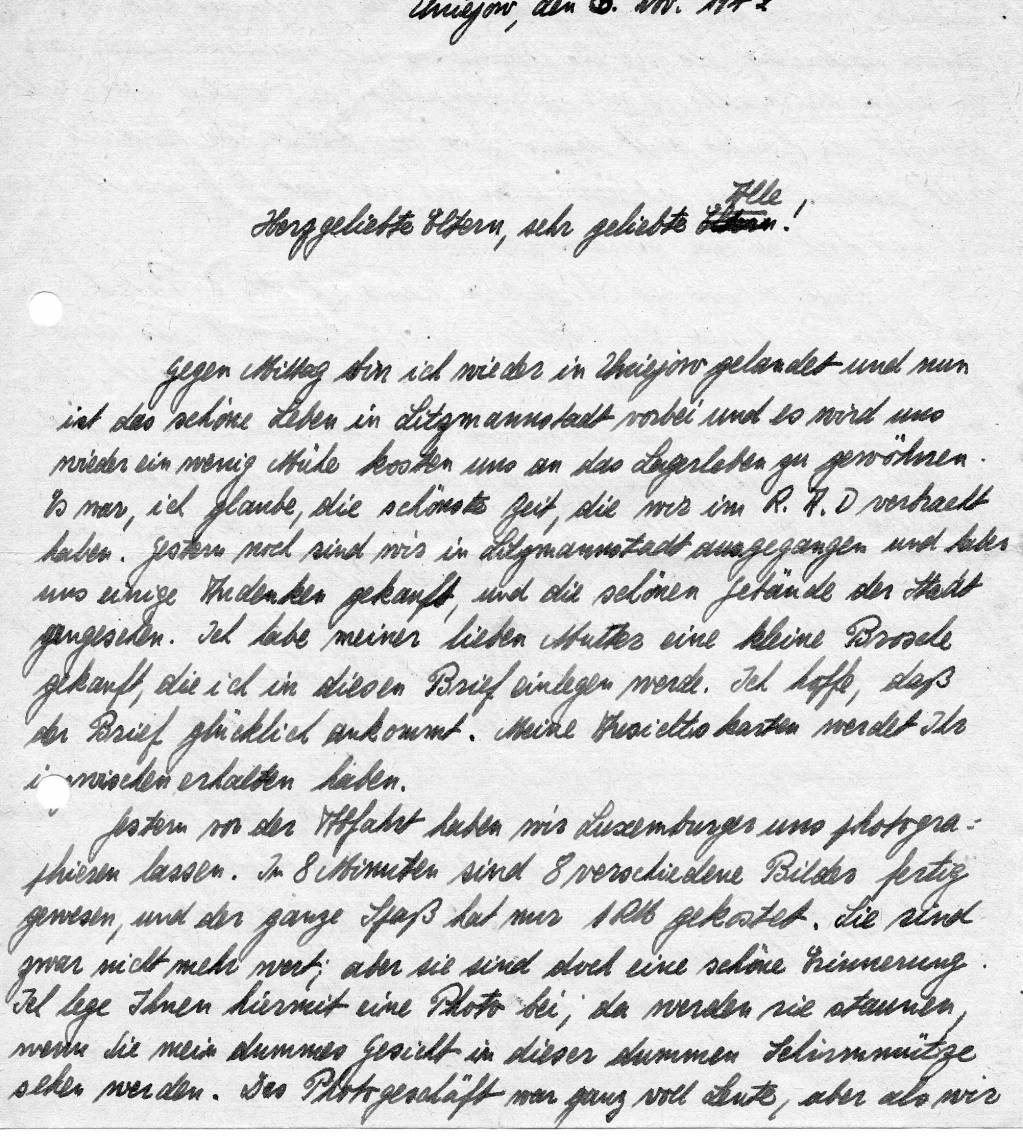 Uniejow, den 6. Nov. 1942
Herzgeliebte Eltern, sehr geliebte Alle!
Gegen Mittag bin ich wieder in Uniejow gelandet und nun
ist das schöne Leben in Litzmannstadt vorbei und es wird uns
wieder ein wenig Mühe kosten uns an das Lagerleben zu gewöhnen.
Es war, ich glaube, die schönste Zeit, die wir im R. A. D verbracht
haben. Gestern noch sind wir in Litzmannstadt ausgegangen und haben
uns einige Andenken gekauft, und die schönen Gebäude der Stadt
angesehen. Ich habe meiner lieben Mutter eine kleine Brosche
gekauft, die ich in diesen Brief einlegen werde. Ich hoffe, daß
der Brief glücklich ankommt. Meine Ansichtskarten werdet Ihr
inzwischen erhalten haben.
Gestern vor der Abfahrt haben wir Luxemburger uns photogra=
phieren lassen. In 8 Minuten sind 8 verschiedene Bilder fertig
gewesen, und der ganze Spaß hat nur 1 RM gekostet. Sie sind
zwar nicht mehr wert; aber sie sind doch eine schöne Erinnerung.
Ich lege Ihnen hiermit eine Photo bei; da werden sie staunen,
wenn Sie mein dummes Gesicht in dieser dummen Schirmmütze
sehen werden. Das Photogeschäft war ganz voll Leute, aber als wir